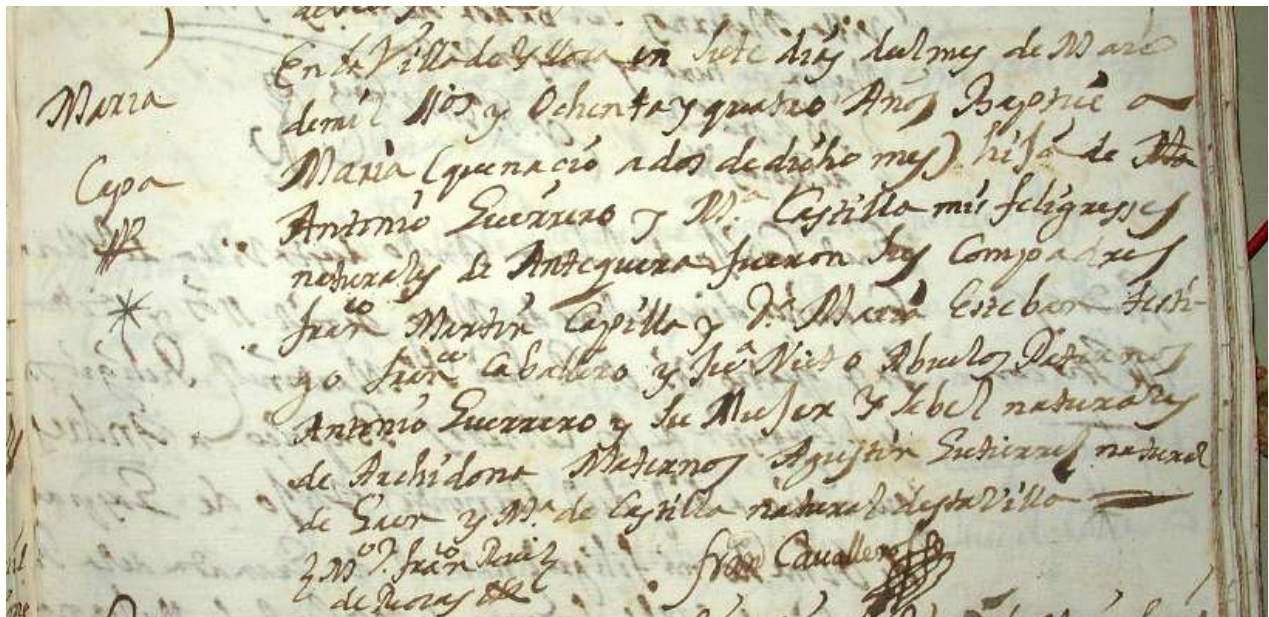 Maria
Capa
En la Villa de Yllora en siete dias del mes de Março
de mil y Ochenta y quatro Años Baptiçe a
Maria (que nacio a dos de dicho mes) hija de
Antonio Guerrero y M.ª Castilla mis feligresses
naturales de Antequera fueron sus Compadres
fran.co Martin Capilla y D.ª Maria Esteban testi-
go fran.co Caballero y Nieto Abuelos Paternos
Antonio Guerrero y su Mujer Ysabel naturales
de Archidona Maternos Agustin Gutierres natural
de y M.ª de Castilla natural desta Villa
M.o D. fran.co Ruiz
de
fran.co Cavallero